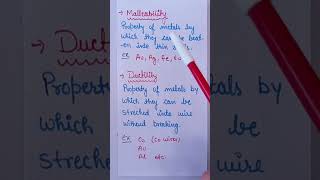 → Malleability
Property of metals by
which they can be beat-
en into thin
ex Au, Ag, Fe, Cu
→ Ductility
Property of metals by
which they can be
streched into wire
without breaking.
ex Cu (Cu wires)
Au
Al etc